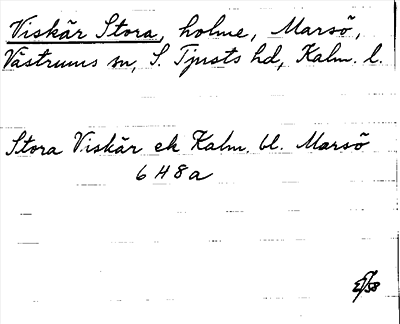 Viskär Stora, holme, Marsö,
Västrums sn, S. Tjusts hd, Kalm. l.
Stora Viskär ek Kalm. bl. Marsö
6 H 8 a